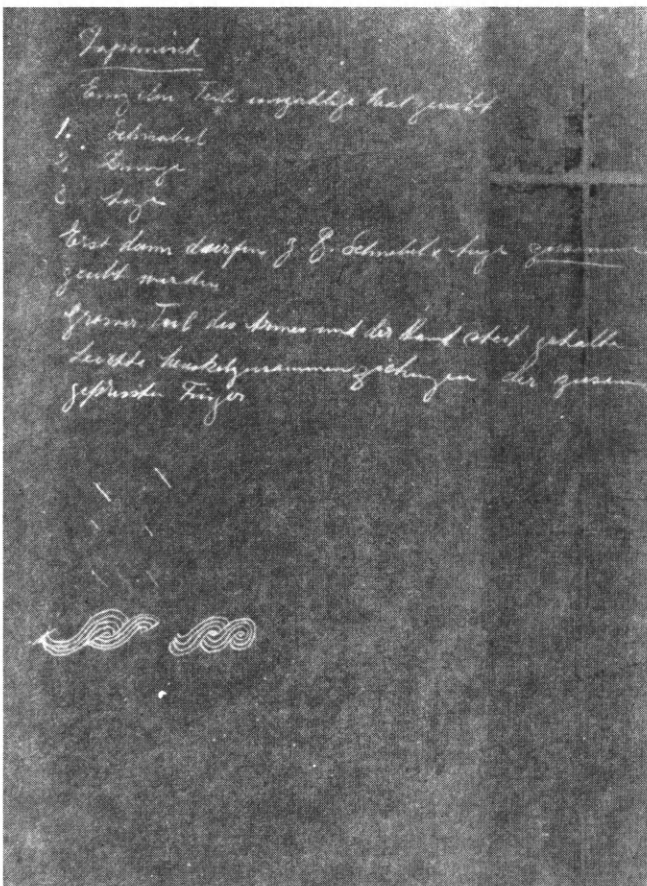 Japanisch
Einzelne Teile unzählige Mal geübt
1. Schnabel
2.
3. Auge
Erst dann duerfen z. B. Schnabel & Auge zusammen
geübt werden
Grosser Teil des Armes und der Hand steif gehalte
Leichte Muskelzusammenziehungen der zusam
gepressten Finger